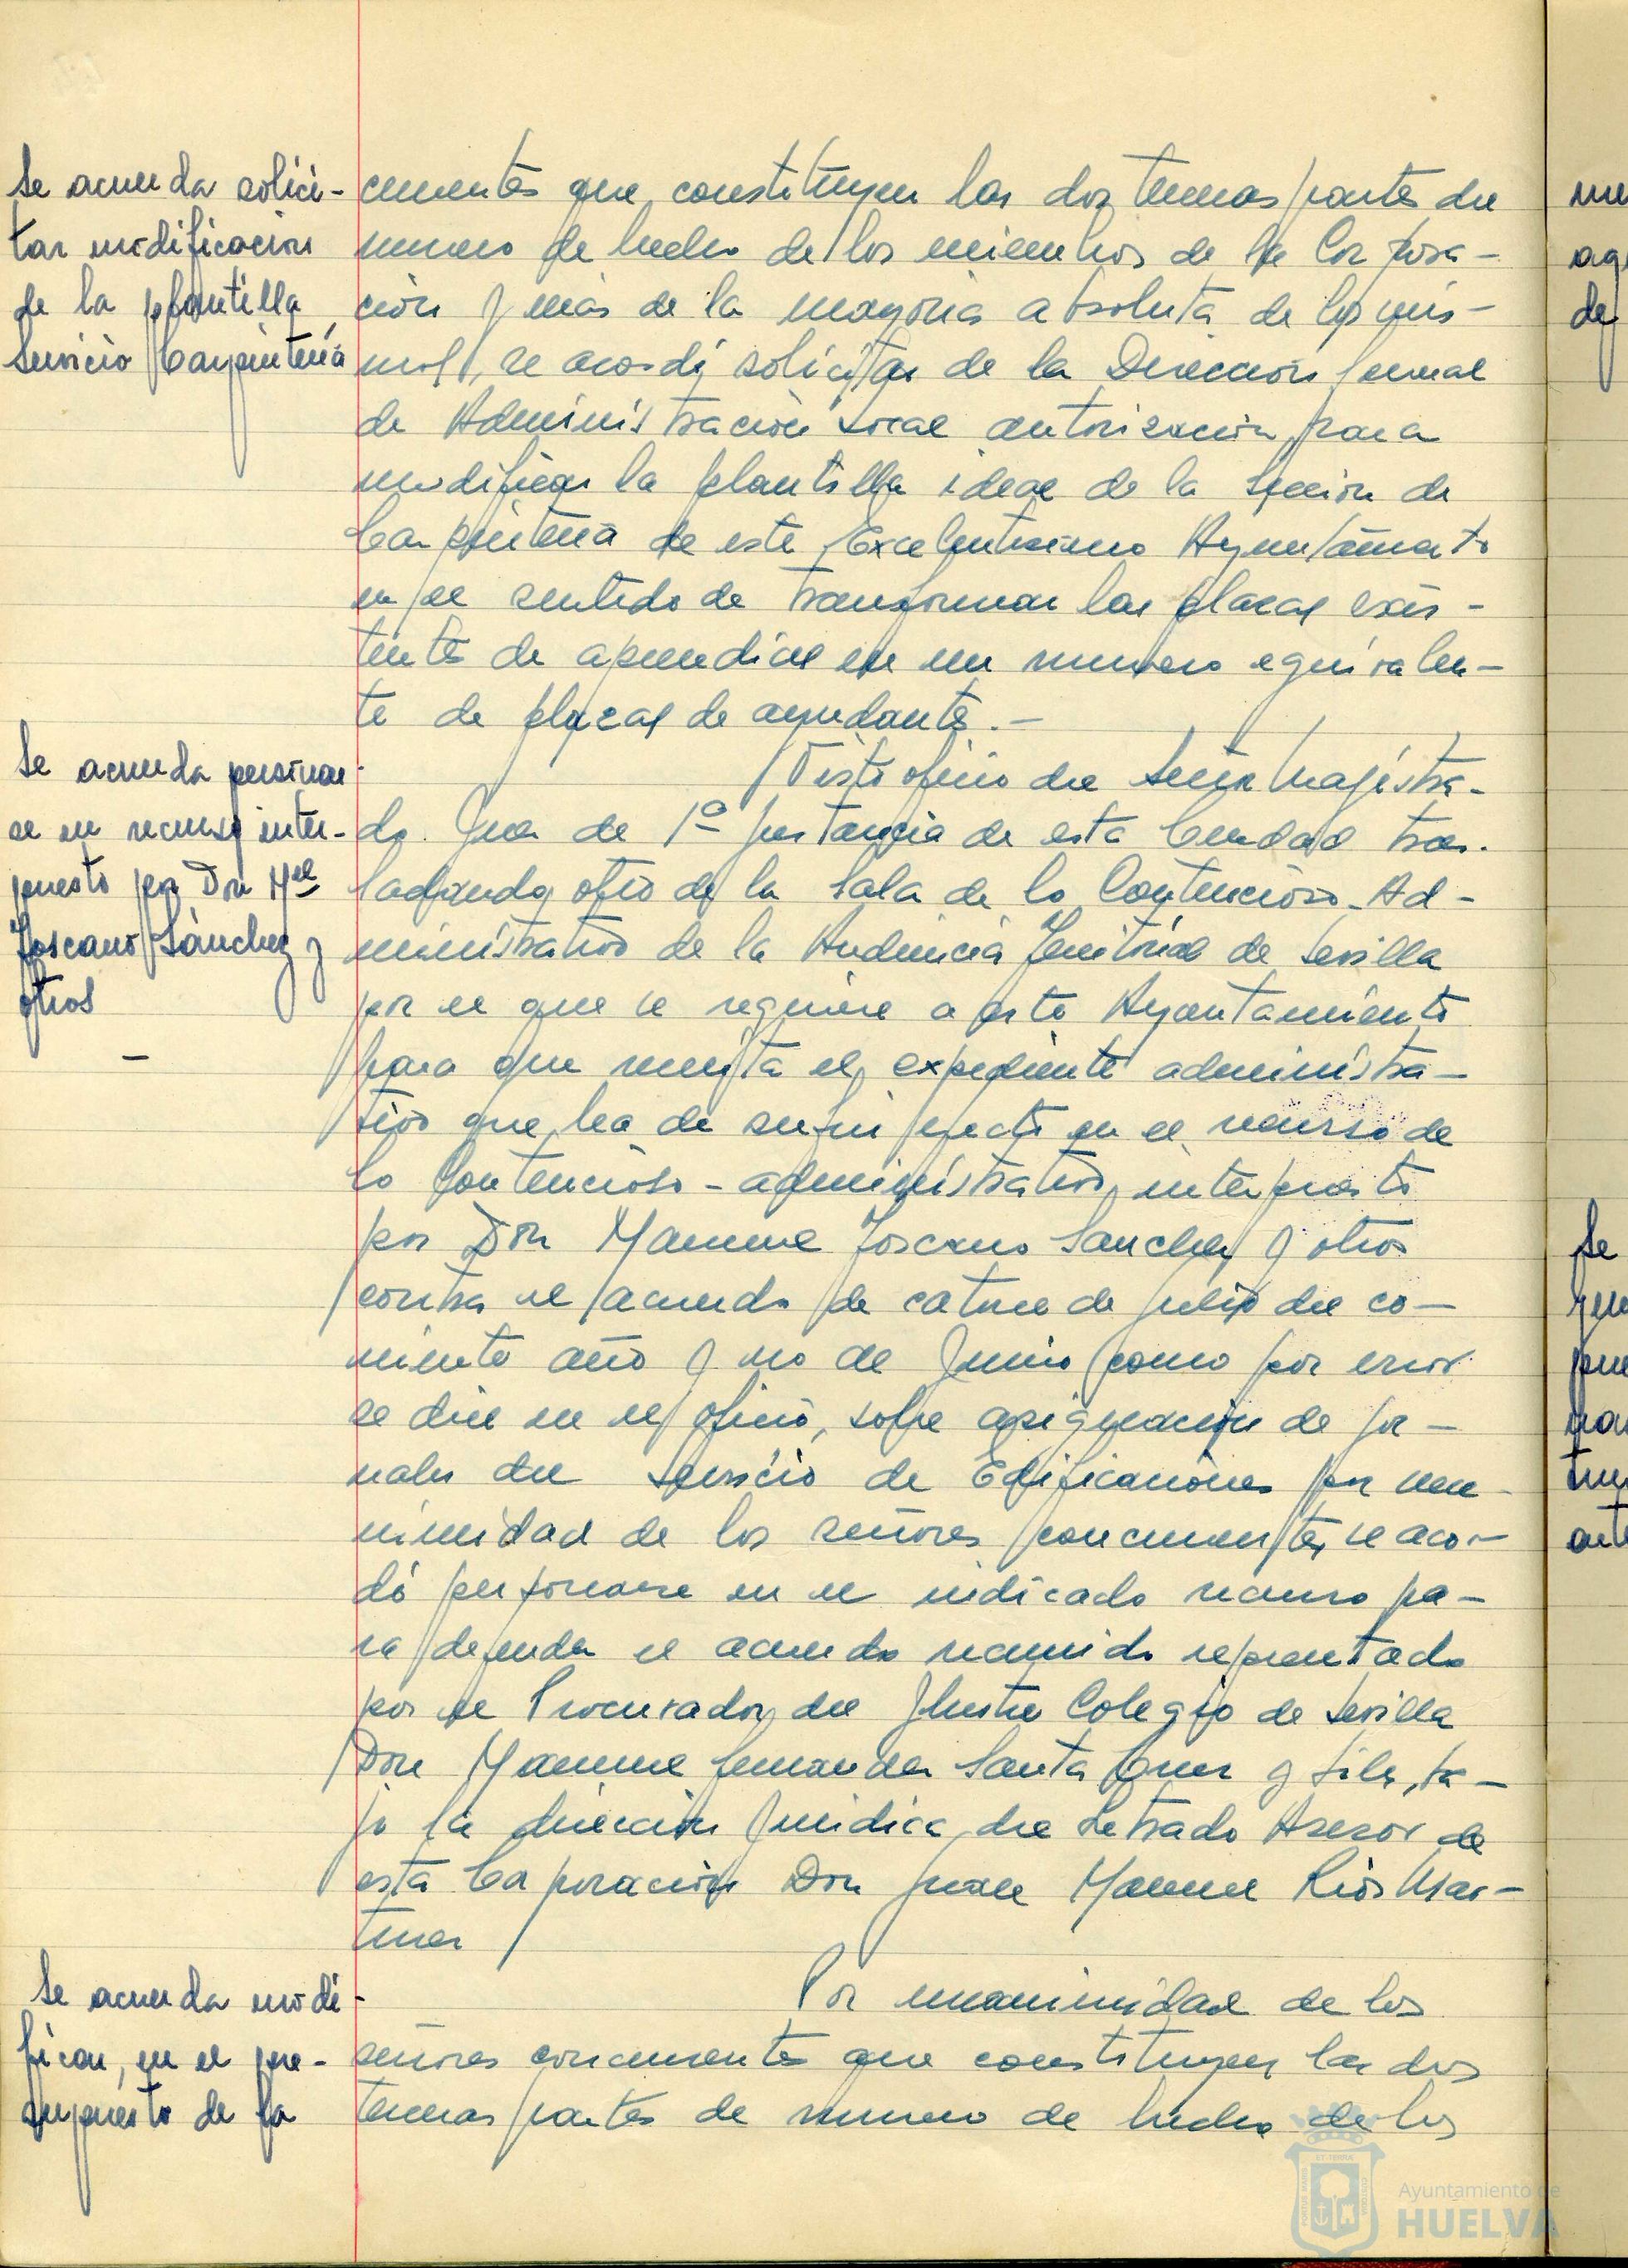 Se acuerda solici-
tar modificacion
de la plantilla
Servicio Carpintería
currentes que constituyen las dos terceras partes del
numero de hecho de los miembros de la Corpora-
ción y más de la mayoria absoluta de los mis-
mos, se acordó solicitar de la Direccion General
de Administración Local autorización para
modificar la plantilla ideal de la Sección de
Carpintería de este Excelentisimo Ayuntamiento
en el sentido de transformar las plazas exis-
tentes de aprendices en un numero equivalen-
te de plazas de ayudantes.-
Se acuerda personar
se en recurso inter-
puesto por Don Mel
Toscano Sánchez y
otros
Visto oficio del Señor Magistra-
do Juez de 1ª Instancia de esta Ciudad tras-
ladando otro de la Sala de lo Contencioso-Ad-
ministrativo de la Audiencia Territorial de Sevilla
por el que se requiere a este Ayuntamiento
para que remita el expediente administra-
tivo que ha de surtir efecto en el recurso de
lo Contencioso-administrativo, interpuesto
por Don Manuel Toscano Sanchez y otros
contra el acuerdo de catorce de julio del co-
rriente año y no de Junio como por error
se dice en el oficio, sobre asignación de jor-
nales del servicio de Edificaciones por una-
nimidad de los señores concurrentes se acor-
dó personarse en el indicado recurso pa-
ra defender el acuerdo recurrido representado
por el Procurador del Ilustre Colegio de Sevilla
Don Manuel Fernandez Santa Cruz y ba-
jo la dirección Juridica del Letrado Asesor de
esta Corporación Don Juan Manuel Ríos Mar-
tinez
Se acuerda modi-
ficar, en el pre-
supuesto de
Por unanimidad de los
señores concurrentes que constituyen las dos
terceras partes de numero de hecho de los
me
de
Se
Ayuntamiento de
HUELVA